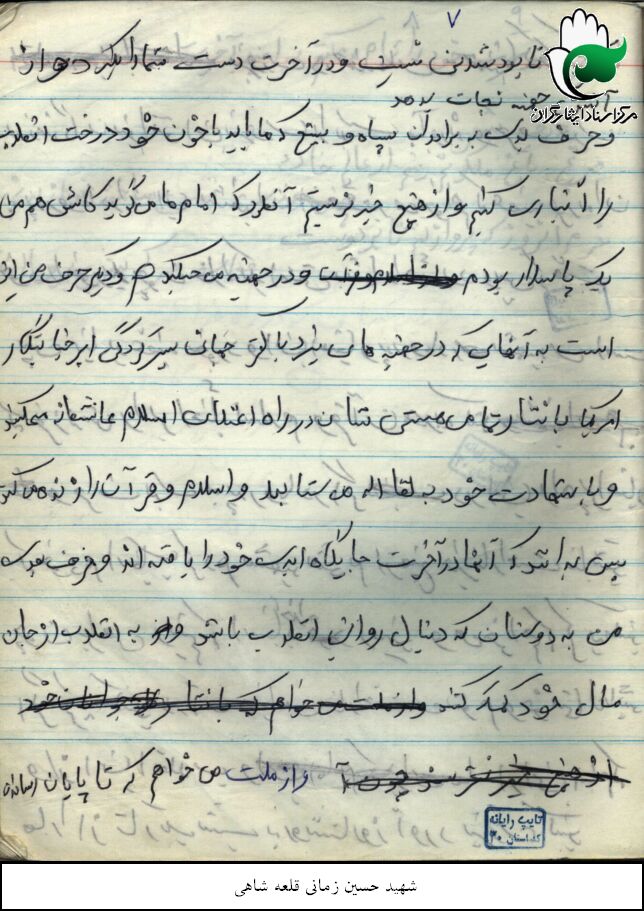 ۷
نابود شدنی نیست و در آخرت دست شما را بگیرد و از
آتش جهنم نجات بدهد
مرکز اسناد ایثارگران
و حرف بعدی به برادران سپاه و بسیج که ما باید با خون خود درخت انقلاب
را آبیاری کنیم و از هیچ چیز نترسیم آنطور که امام ما می گوید کاش من هم
یک پاسدار بودم و در جبهه می جنگیدم و دیگر حرف من این
است به آنهایی که در جبهه های نبرد با کفر جهانی به سرکردگی ابر جنایتکار
امریکا با نثار تمامی هستی شان در راه اعتلای اسلام عاشقانه می جنگند
و با شهادت خود به لقاء الله می شتابند و اسلام و قرآن را زنده می کنند
پس بدانند که آنها در آخرت جایگاه ابدی خود را یافته اند و حرف بعدی
من به دوستان که دنبال روان انقلاب باشند و به انقلاب از جان
مال خود کمک کنند
و از ملت می خواهم که تا پایان رساندن
تایپ رایانه
کد استان ۳۰
شهید حسین زمانی قلعه شاهی